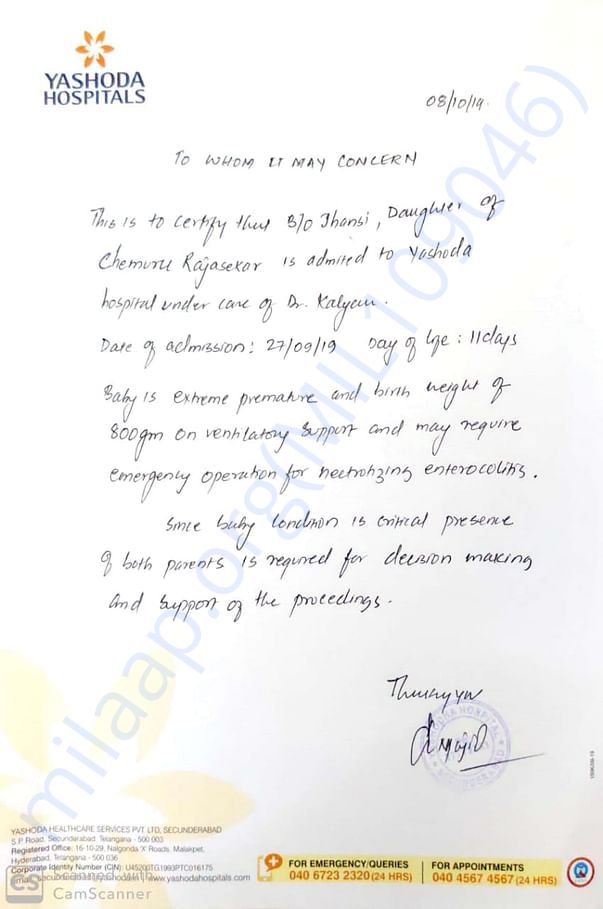 YASHODA
HOSPITALS
08/10/19.
TO WHOM IT MAY CONCERN
This is to certify that B/O Jhansi, Daughter of
Chemuru Rajasekar is admited to Yashoda
hospital under care of Dr. Kalyan.
Date of admission: 27/09/19 Day of life: 11days
Baby is extreme premature and birth weight of
800gm on ventilatory support and may require
emergency operation for necrotizing enterocolitis.
Since baby condition is critical presence
of both parents is required for decision making
and support of the proceedings.
Thanking you
milaap.org(MIL109046)
YASHODA HEALTHCARE SERVICES PVT LTD, SECUNDERABAD
S.P Road, Secunderabad Telangana - 500 003
Registered Office: 16-10-29, Nalgonda 'X' Roads, Malakpet,
Hyderabad, Telangana - 500 036
Corporate Identity Number (CIN): U45200TG1993PTC016175
www.yashodahospitals.com
FOR EMERGENCY/QUERIES
040 6723 2320 (24 HRS)
FOR APPOINTMENTS
040 4567 4567 (24 HRS)
CS Scanned with
CamScanner